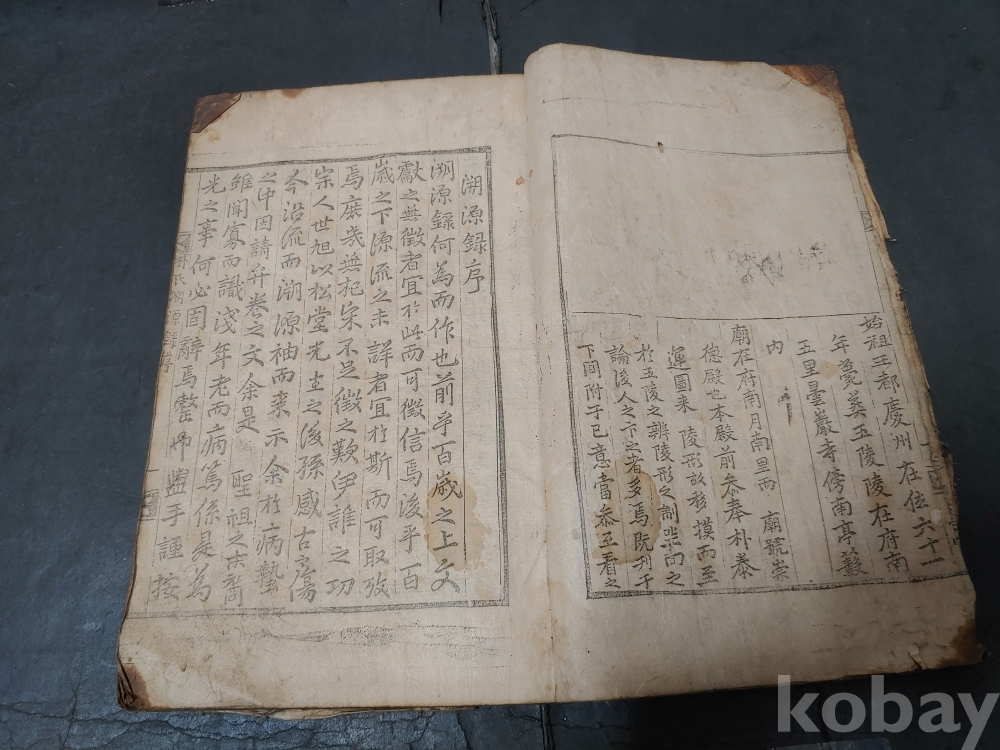 始祖王都慶州在位六十一
年薨葬五陵陵在府南
五里曇巖寺傍南亭藪
內
廟在府南月南里而 廟號崇
德殿也本殿前參奉朴泰
運圖來 陵形故移摸而至
於五陵之辨陵形之制
論後人之下之者多焉既刊于
下間附于己意當參互看之
溯源錄序
溯源錄何為而作也前乎百歲之上文
獻之無徵者宜於此而可徵信焉後乎百
歲之下源流之未詳者宜於斯而可取攷
焉庶幾無杞宋不足徵之歎伊誰之功
宗人世旭以松堂先生之後孫感古傷
今沿流而溯源袖而來示余於病蟄
之中因請弁卷之文余是 聖祖之宗裔
雖聞寡而識淺年老而病篤係是為
先之事何必固辭焉整巾盥手謹按
朴氏溯源錄序
kobay